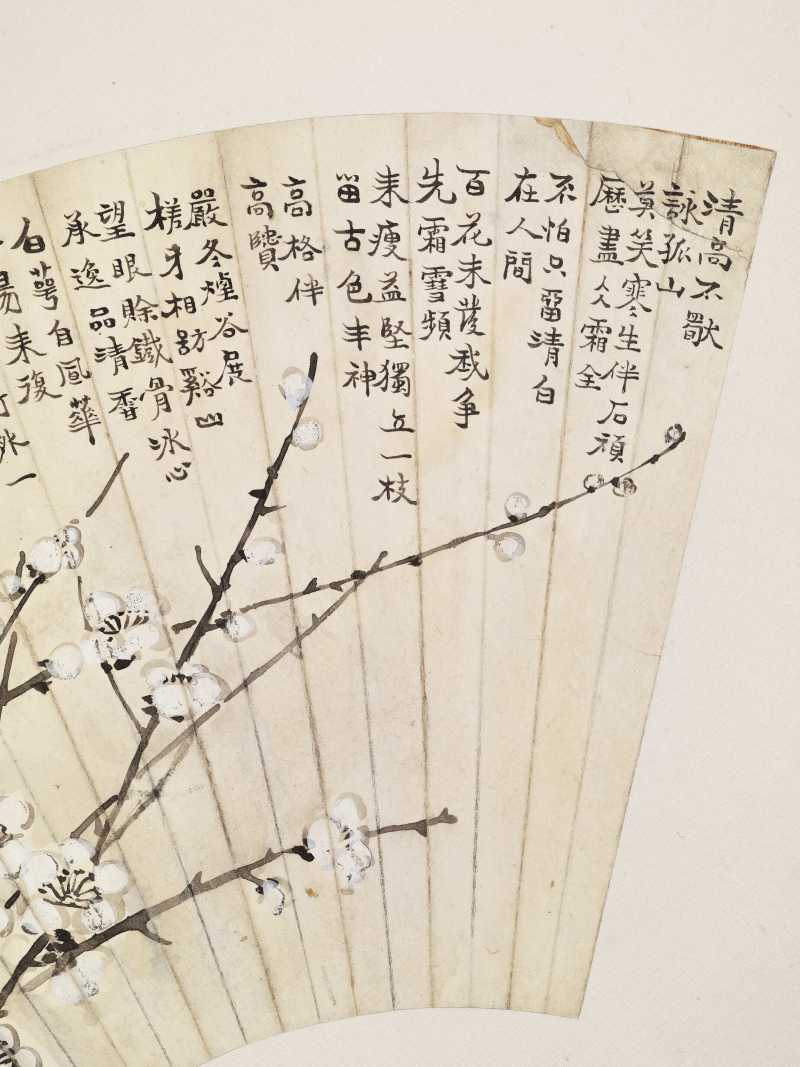 清高不歇
詠孤山
莫笑寒生伴石頑
歷盡仌霜全
不怕只畱清白
在人間
百花未發我爭
先霜雪頻
來瘦益堅獨立一枝
畱古色丰神
高格伴
高
嚴冬煙谷展
槎牙相訪谿山
望眼賒鐵骨冰心
承逸品清香
白萼自風華
昜來復
外一